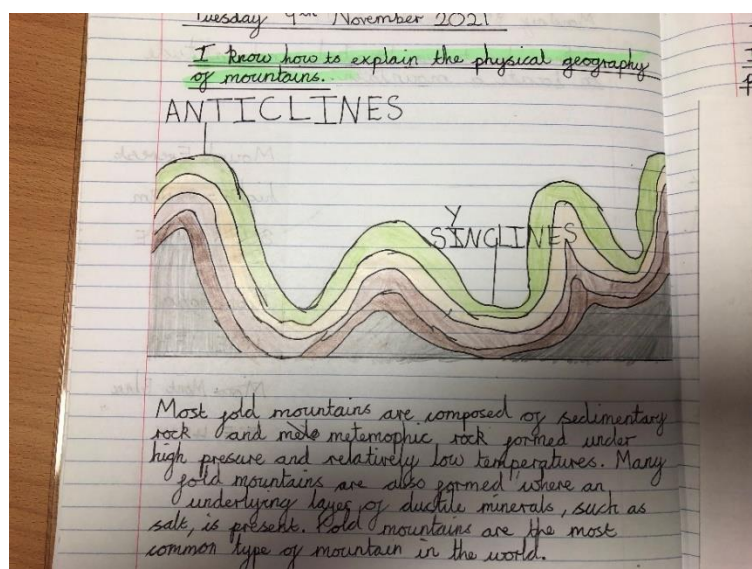 Tuesday 9th November 2021
I know how to explain the physical geography
of mountains.
ANTICLINES
Y
SINCLINES
Most fold mountains are composed of sedimentary
rock and metemophic rock formed under
high presure and relatively low temperatures. Many
fold mountains are also formed where an
underlying layer of ductile minerals, such as
salt, is present. Fold mountains are the most
common type of mountain in the world.